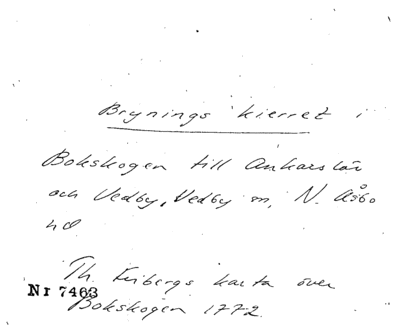 Brynings kierret i
Bokskogen till Ankarslöv
och Vedby, Vedby sn, N. Åsbo
hd
Th. Fribergs karta över
Nr 7463
Bokskogen 1772.